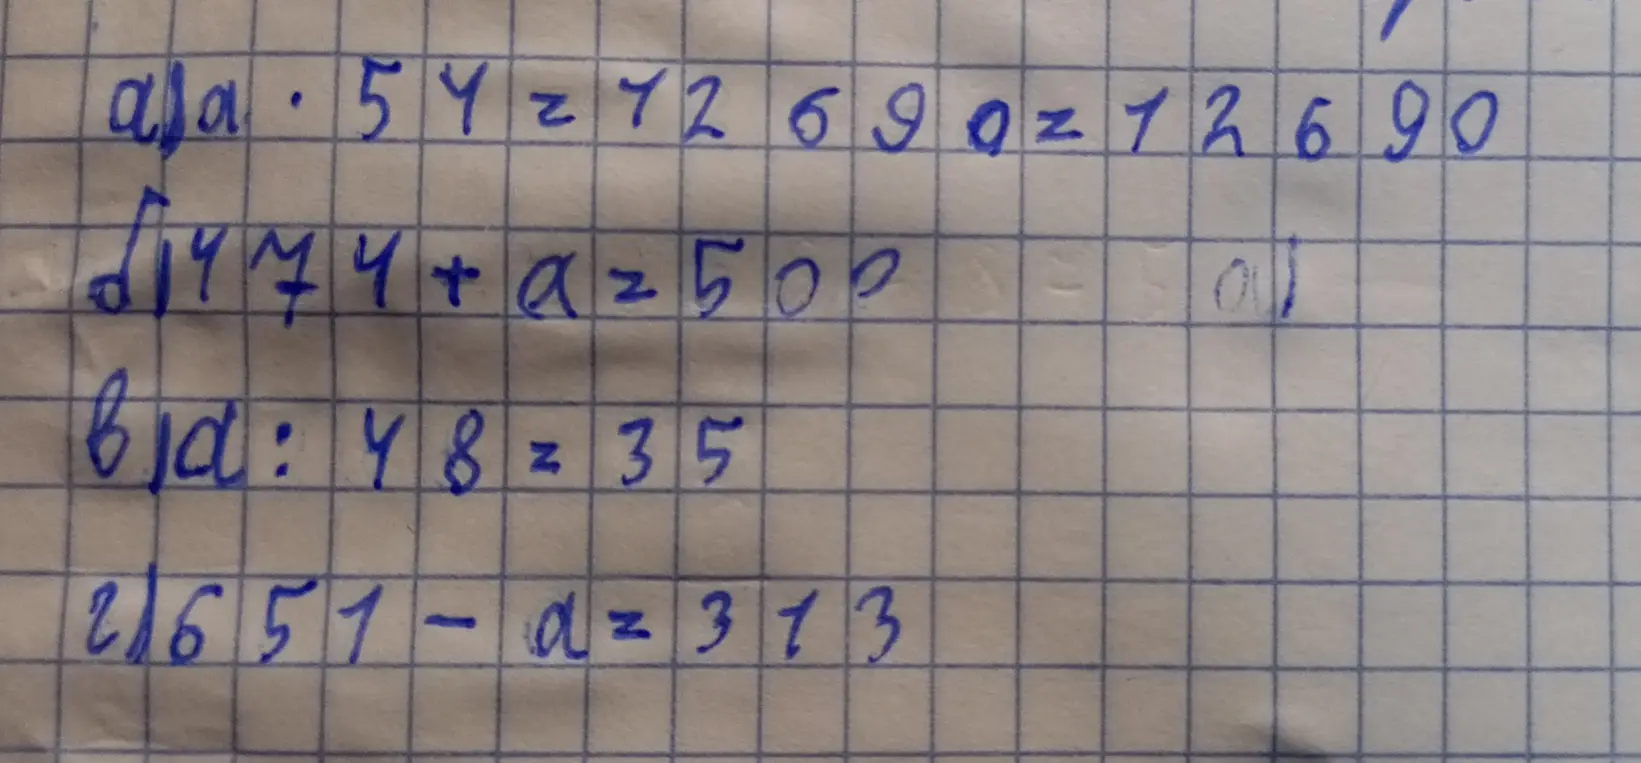 а) a · 54 = 12690 = 12690
б) 474 + a = 500 а)
в) a : 48 = 35
г) 651 - a = 313